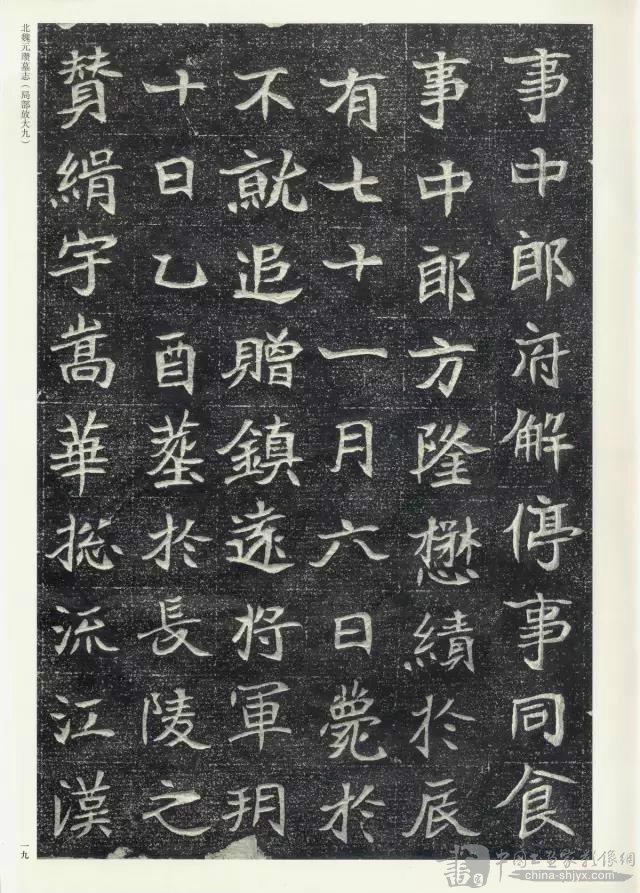 事中郎府解停事同食
事中郎方隆懋績於辰
有七十一月六日薨於
不就追贈鎮遠將軍玥
十日乙酉葬於長陵之
贊緝宇嵩華揔流江漢
北魏元瓚墓志(局部放大九)
一九
中国书画家影像網
china-shjyx.com